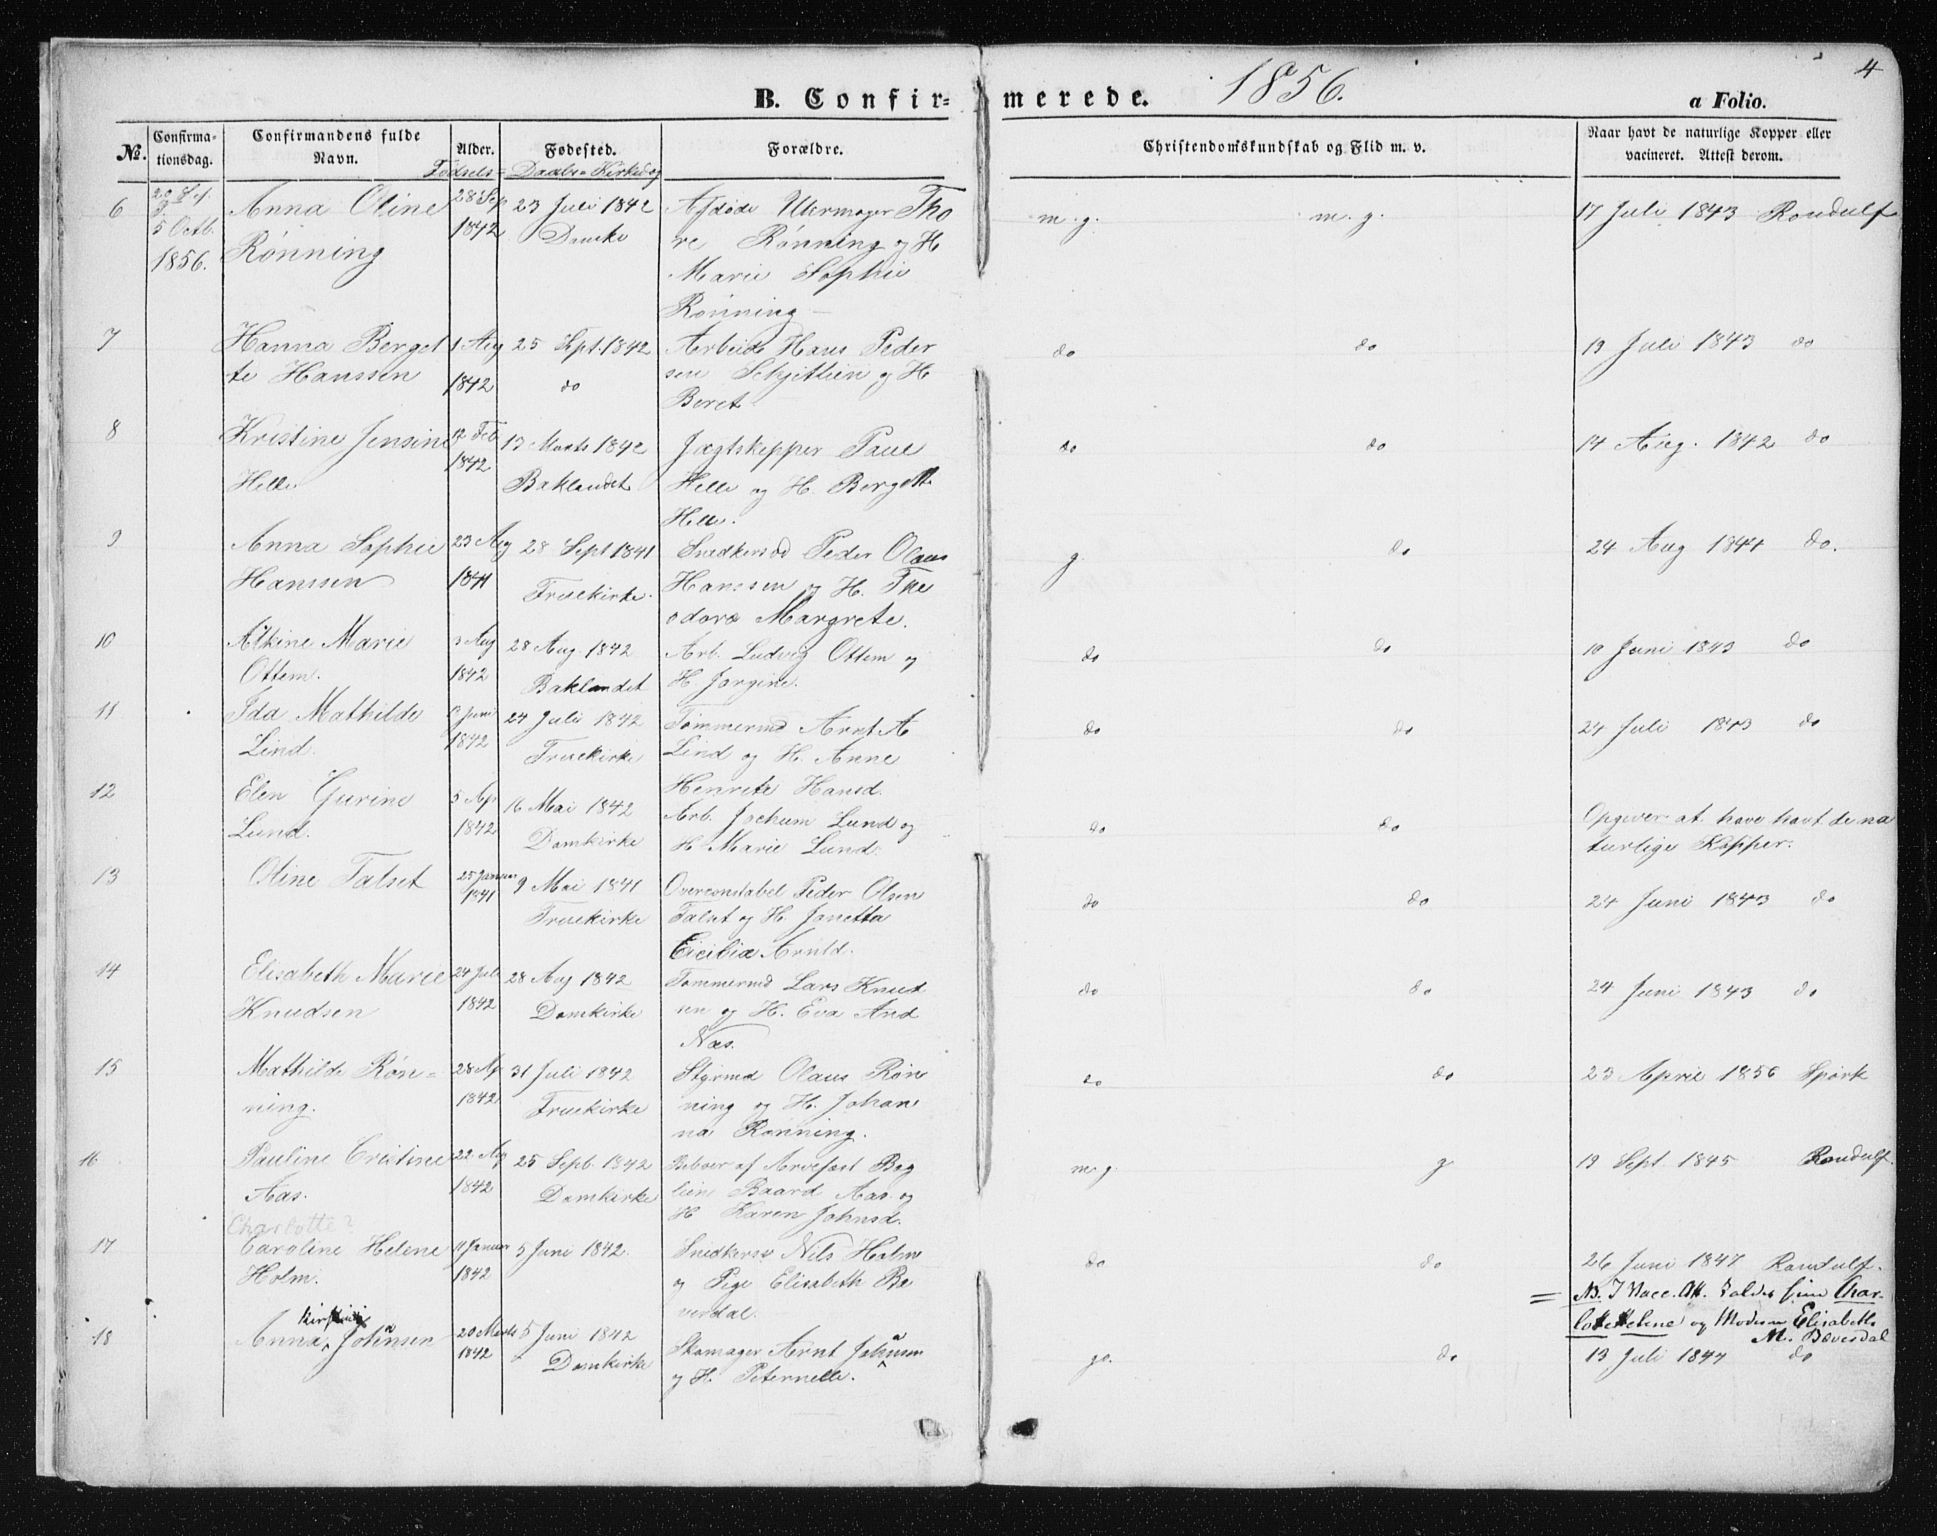 B. Confir=
merede.
1856.
4
a Folio.
No.
Confirma=
tionsdag.
Confirmandens fulde
Navn.
Alder.
Fødsels=
Fødested.
Daabs= Kirkebog
Forældre.
Christendomskundskab og Flid m. v.
Naar havt de naturlige Kopper eller
vacineret. Attest derom.
6
5 Octb.
1856.
Anna Oline
Rønning
28 Sep
1842
23 Juli 1842
Domke
Afdøde Uhrmager Tho
re Rønning og H
Marie Sophie
Rønning
m. g.
m. g.
17 Juli 1843 Randulf
7
Hanna Berget
te Hanssen
1 Aug
1842
25 Sept. 1842
do
Arbeids Hans Peder
sen Schjetlein og H
Beret
do
do
19 Juli 1843 do
8
Kristine Jensine
Helle
12 Feb
1842
13 Marts 1842
Baklandet
Jægtskipper Paul
Helle og H. Bergette
Helle.
do
do
14 Aug. 1842 do
9
Anna Sophie
Hanssen
23 Aug
1841
28 Sept 1841
Fruekirke.
Snedkersvd Peder Olaus
Hanssen og H. The
odora Margrete.
g.
do
24 Aug 1844 do.
10
Alkine Marie
Ottem.
3 Aug
1842
28 Aug. 1842
Baklandet
Arb. Ludvig Ottem og
H. Jorgine.
do
do
10 Juni 1843 do
11
Ida Mathilde
Lind.
Juni
1842
24 Juli 1842
Fruekirke
Tømmermd Arnt A
Lind og H. Anne
Henrete Hansd.
do
do
24 Juli 1843 do
12
Elen Gurine
Lund.
5 Ap
1842
16 Mai 1842
Domkirke
Arb. Jochum Lund og
H Marie Lund.
do
do
Opgiver at have havt de na
turlige Kopper.
13
Oline Talset
25 Januar
1841
9 Mai 1841
Fruekirke
Overconstabel Peder Olsen
Talset og H. Janetta
Cicilia Arntd.
do
do
24 Juni 1843 do
14
Elisabeth Marie
Knudsen
24 Juli
1842
28 Aug 1842
Domkirke
Tømmermd Lars Knud
sen og H. Eva And
Næs.
do
do
24 Juni 1843 do
15
Mathilde Røn=
ning.
28 Ap
1842
31 Juli 1842
Fruekirke
Styrmd Olaus Røn
ning og H. Johan
na Rønning.
do
do
23 April 1856 Spørk
16
Pauline Cristine
Aas.
22 Aug
1842
25 Septb. 1842
Domkirke
Beboer af Arvefast Bag
lien Baard Aas og
H Karen Johnsd.
m g.
g.
19 Sept. 1845 Randulf.
Charlotte?
17
Caroline Helene
Holm.
Januar
1842
5 Juni 1842.
Snedkersv Nils Holm
og Pige Elisabeth Be
verdal.
do
do
26 Juni 1847 Randulf.
= NB. I Vacc. Att. kaldes hun Char
lotte Helene og Moderen Elisabeth
M. Bæverdal
18
Anna Johansen
20 Marts
1842
5 Juni 1842
Domkirke
Skomager Arnt Johansen
og H. Peternelle.
g.
do
13 Juli 1844 do